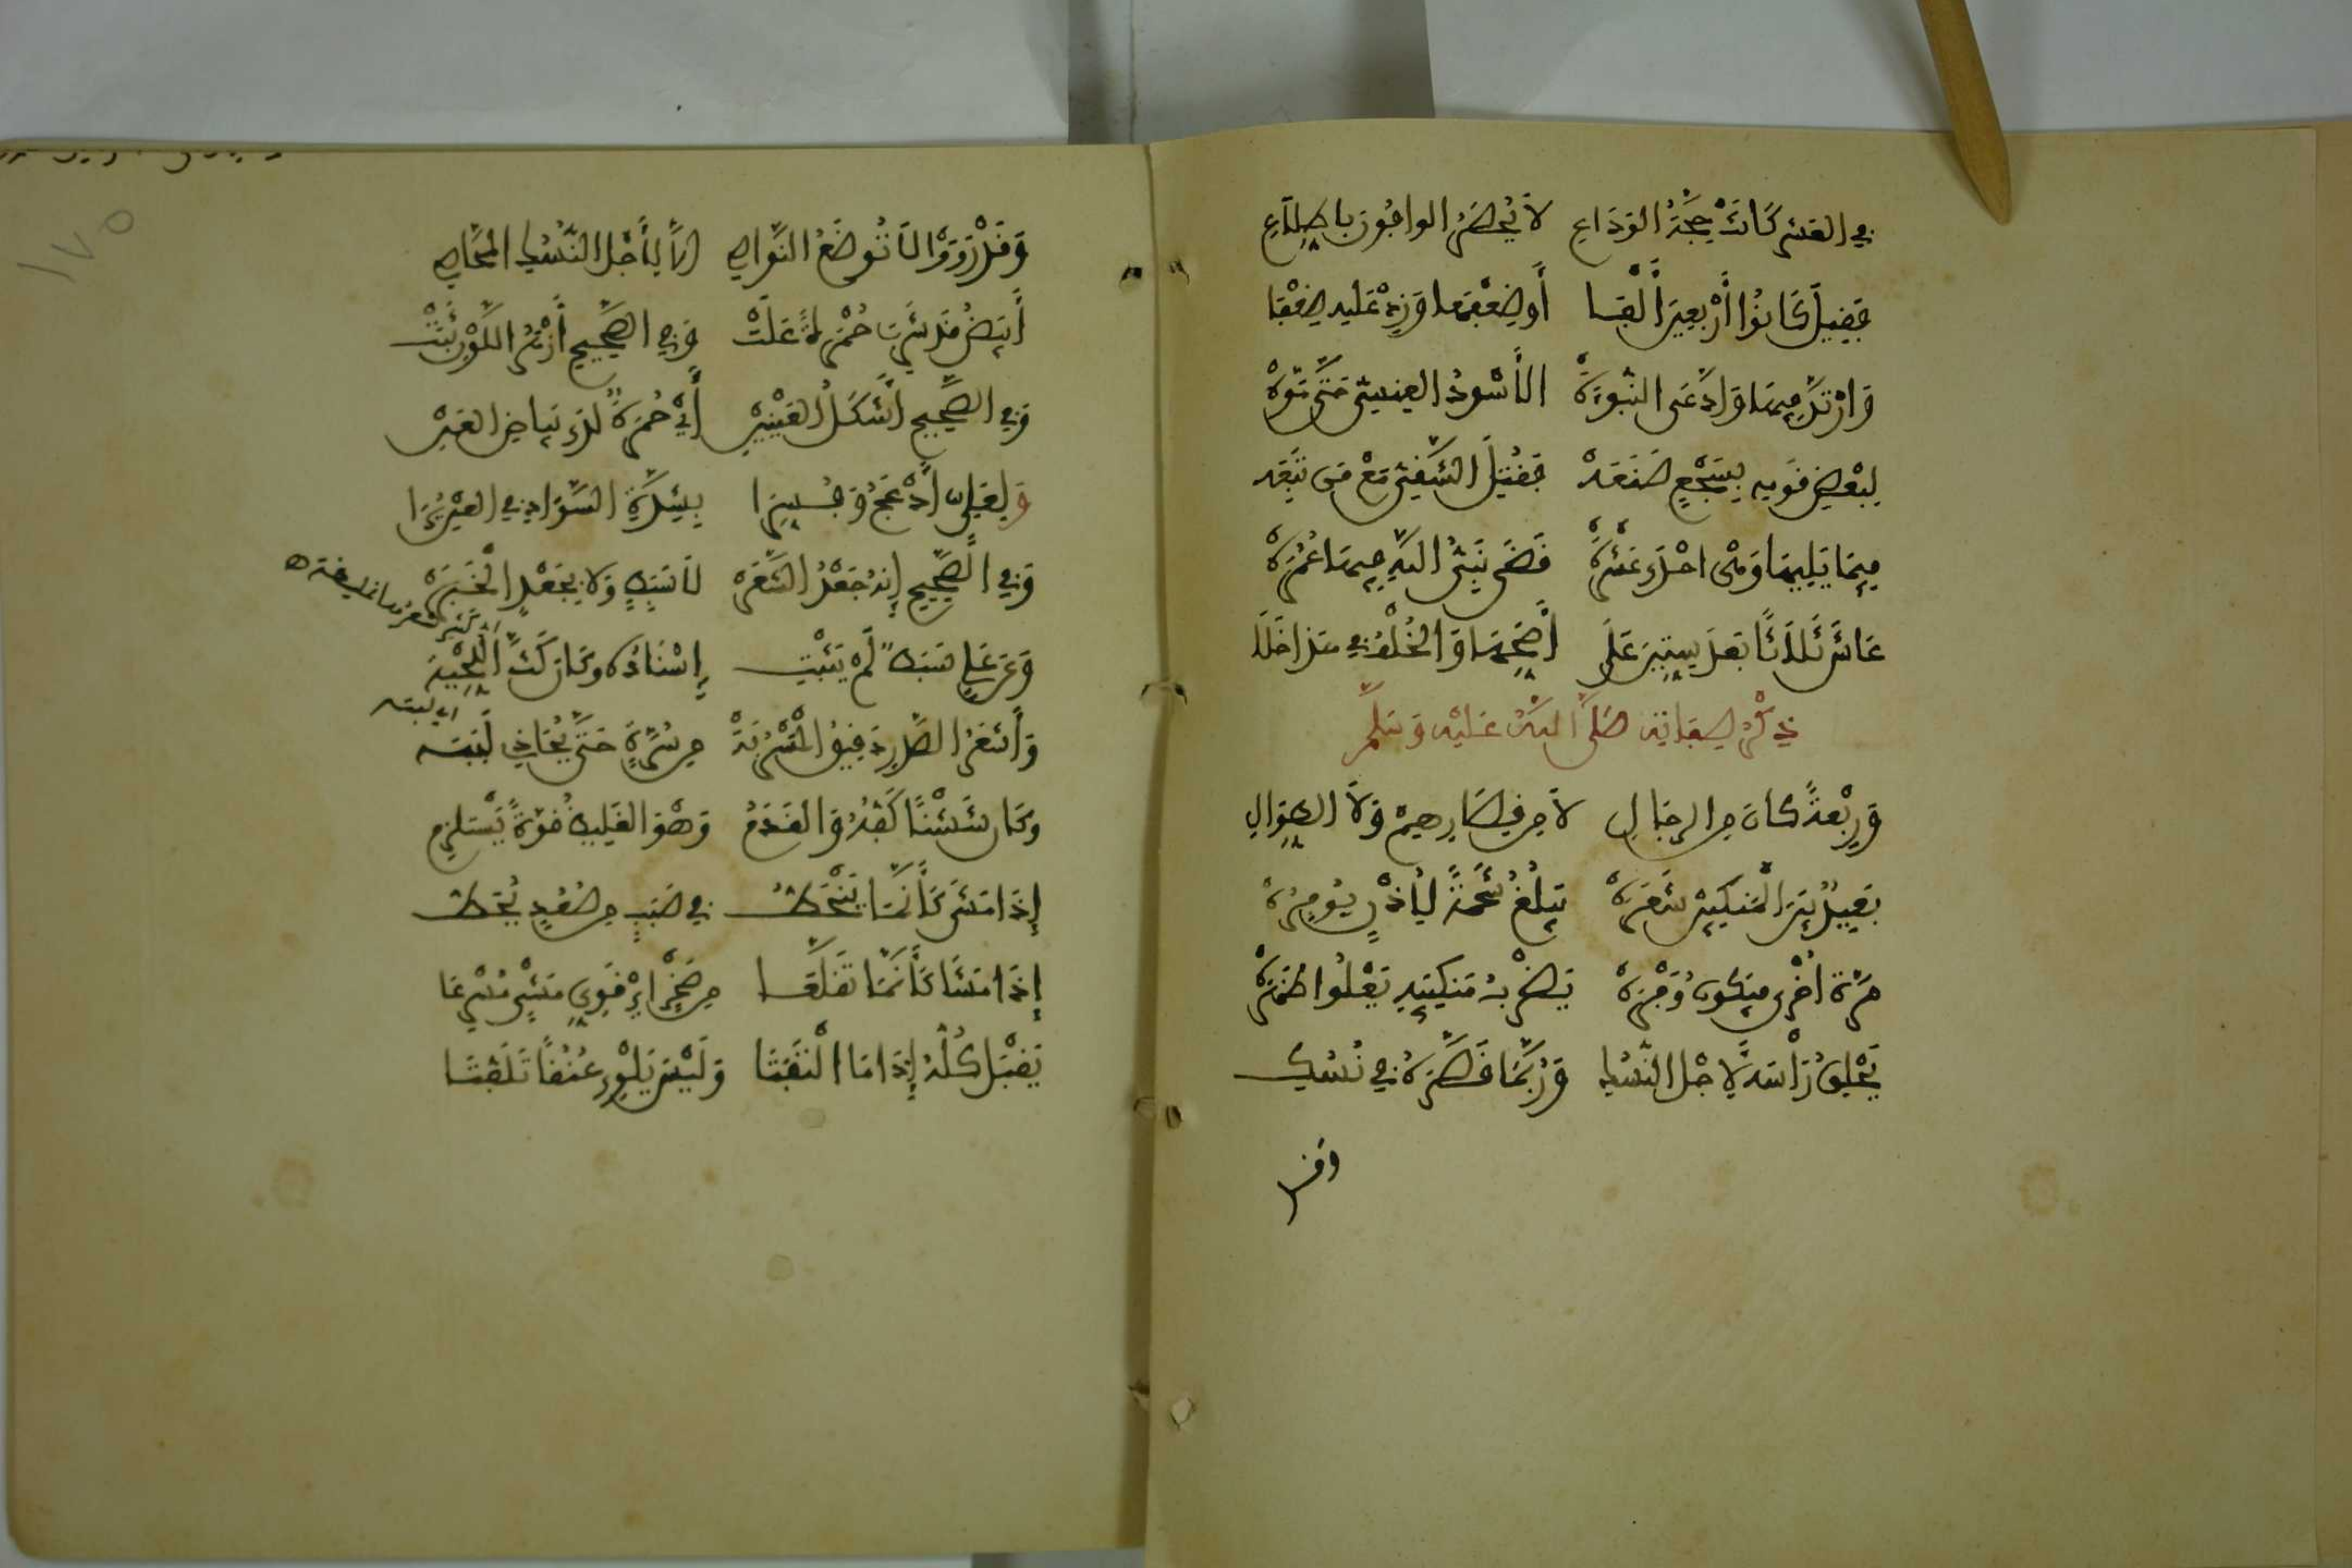 في العشر كانت حجة الوداع لا يحصر الوافون باطلاع
فقيل كانوا أربعين ألفا أو ضعفها وزد عليه ضعفا
وارتد فيها وادعى النبوة الأسود العنسي حتى موه
لبعض قومه بسجع صنعه فقتل الشقي مع من تبعه
فيما يليها وهي احدى عشرة قضى نبي الله فيها عمره
عاش ثلاثا بعد ستين على أصحها والخلف في هذا خلا
ذكر صفاته صلى الله عليه وسلم
وربعة كان من الرجال لا من قصارهم ولا الطوال
بعيد بين المنكبين شعره يبلغ شحمة لأذن يوفره
مرة اخرى فيكون وفره يضرب منكبيه يعلوا ظهره
يحلق رأسه لاجل النسك وربما قصره في نسك
وقد
١٧٥
وقد رووا لا توضع النواصي الا لأجل النسك المحاصي
أبيض قد شرب حمرة علت وفي الصحيح أزهر اللون ثبت
وفي الصحيح أشكل العينين أي حمرة لدى بياض العين
ولعلي أدعج وفسرا بشدة السواد في العين يرى
وفي الصحيح إنه جعد الشعر لا سبط ولا بجعد الخبر
وعن علي سبط لم يثبت إسناده وكان كث اللحية
أي كثير شعر
وأشعر الصدر دقيق المسربة من سرة حتى يحاذي لببه
أي لبته
وكان شثنا كفه والقدم وهو الغليظ قوة يستلزم
إذا مشى كأنما ينحط في صبب من صعد يحط
إذا مشا كأنما تقلعا من صخر اي قوي مشي مسرعا
يقبل كله إذا ما التفتا وليس يلوي عنقا تلفتا